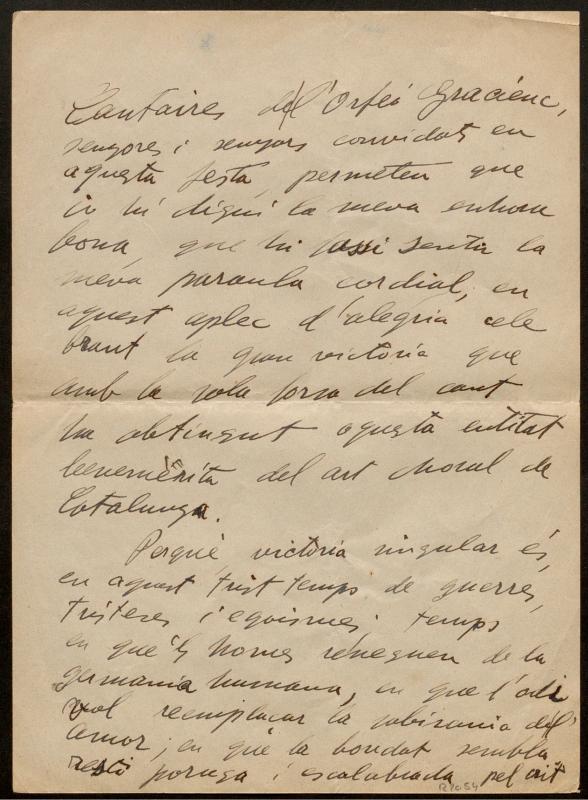 Cantaires de l'Orfeó Gracienc,
senyores i senyors convidats en
aquesta festa, permeteu que
io hi digui la meva enhora
bona, que hi fassi sentir la
meva paraula cordial, en
aquest aplec d'alegria cele
brant la gran victória que
amb la sola forsa del cant
ha obtingut aquesta entitat
benemérita del art choral de
Catalunya.
Perqué victória singular és,
en aquest trist temps de guerres,
tristeses i egoismes; temps
en que 'ls homes reneguen de la
germania humana, en que l'odi
vol reemplaçar la sobirania del
amor; en que la bondat sembla
restá poruga i escalabrada pel crit
R.7054